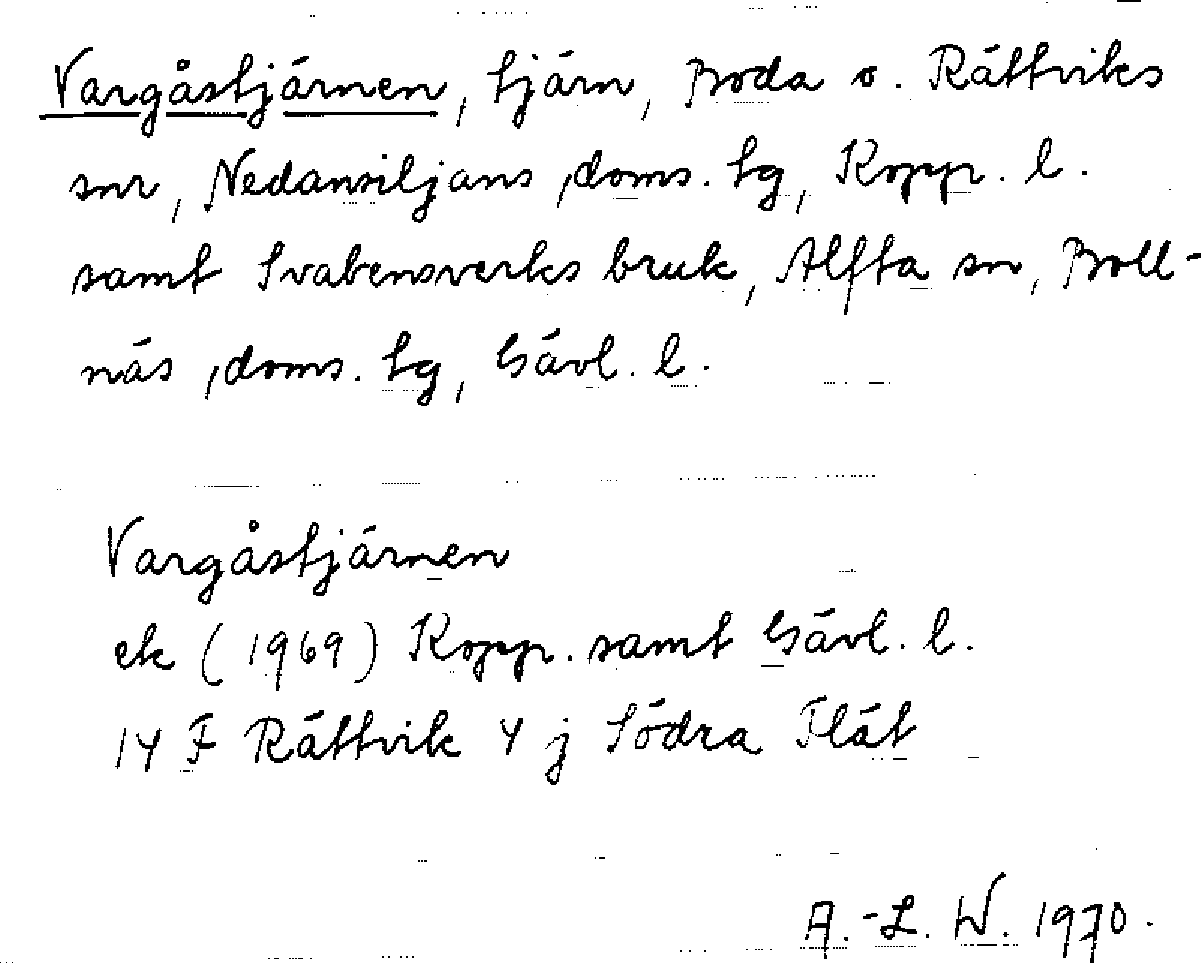 Vargåstjärnen, tjärn, Boda o. Rättviks
snr, Nedansiljans ,doms. tg, Kopp. l.
samt Svabensverks bruk, Alfta sn, Boll-
näs ,doms. tg, Gävl. l.
Vargåstjärnen
ek (1969) Kopp. samt Gävl. l.
14 F Rättvik 4 j Södra Flät
A.-L. W. 1970.